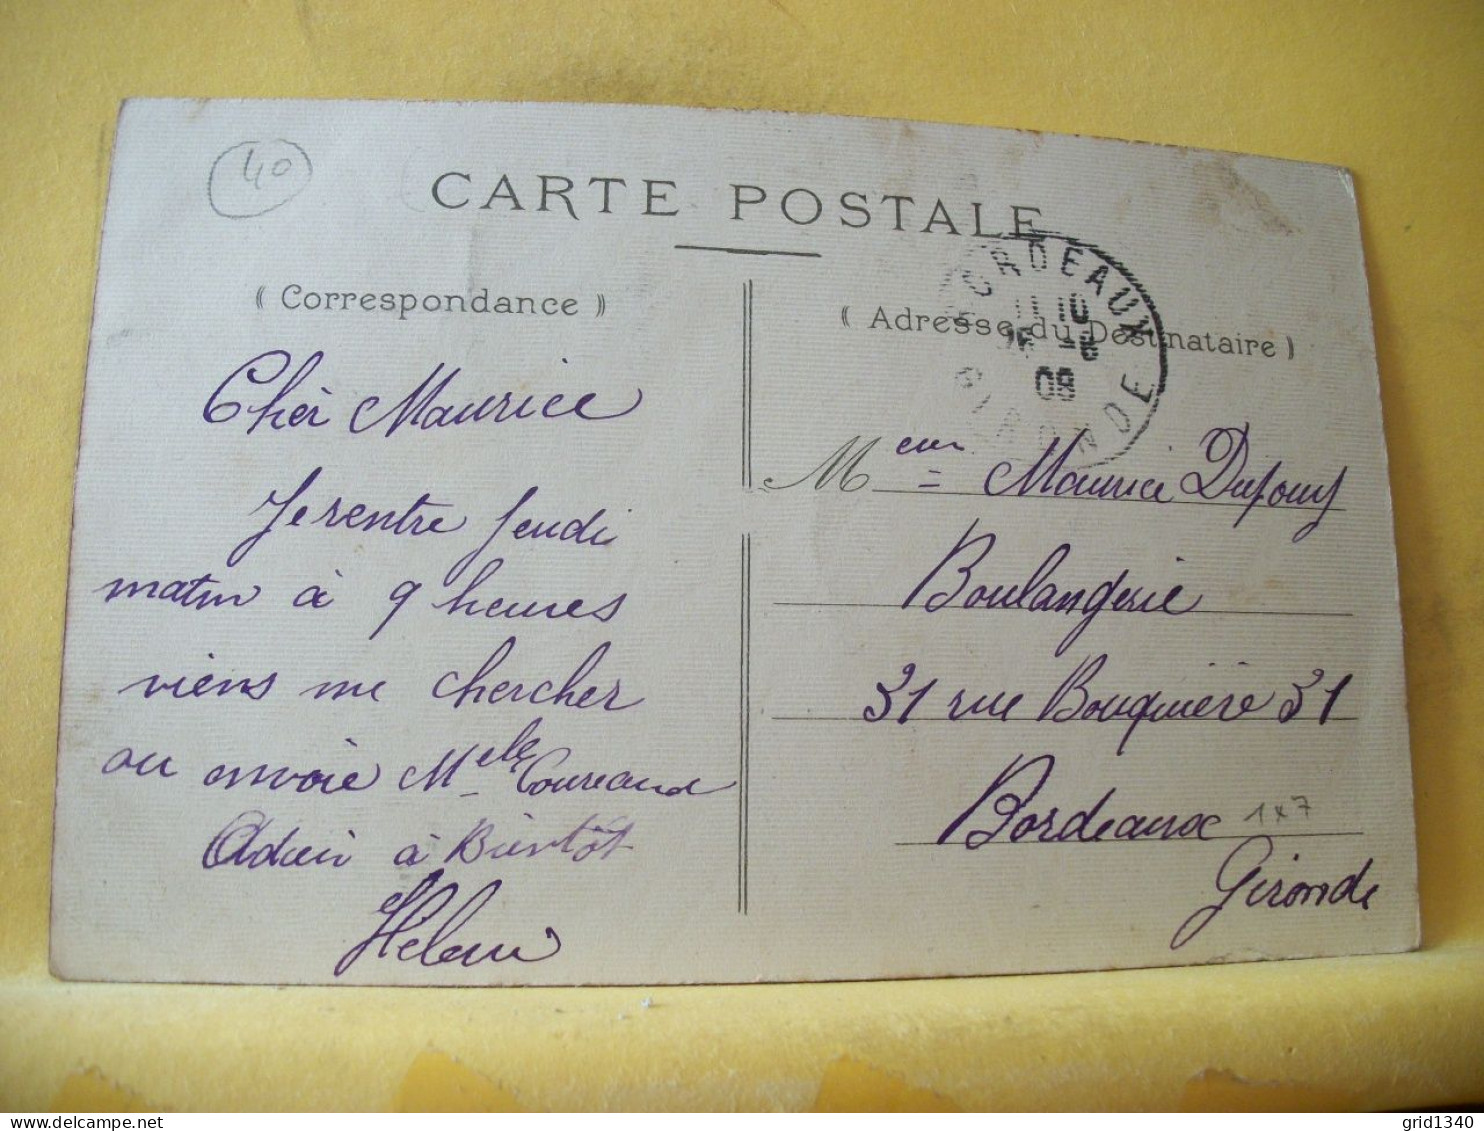 40
CARTE POSTALE
(( Correspondance ))
Cher Maurice
Je rentre Jeudi
matin à 9 heures
viens me chercher
ou envoie Melle
Adieu à Bientôt
BORDEAUX
11 10
-8
08
GIRONDE
(( Adresse du Destinataire ))
Meur = Maurice Dufouy
Boulangerie
31 rue Bouquière 31
Bordeaux 1x7
Gironde
delcampe.net
grid1340